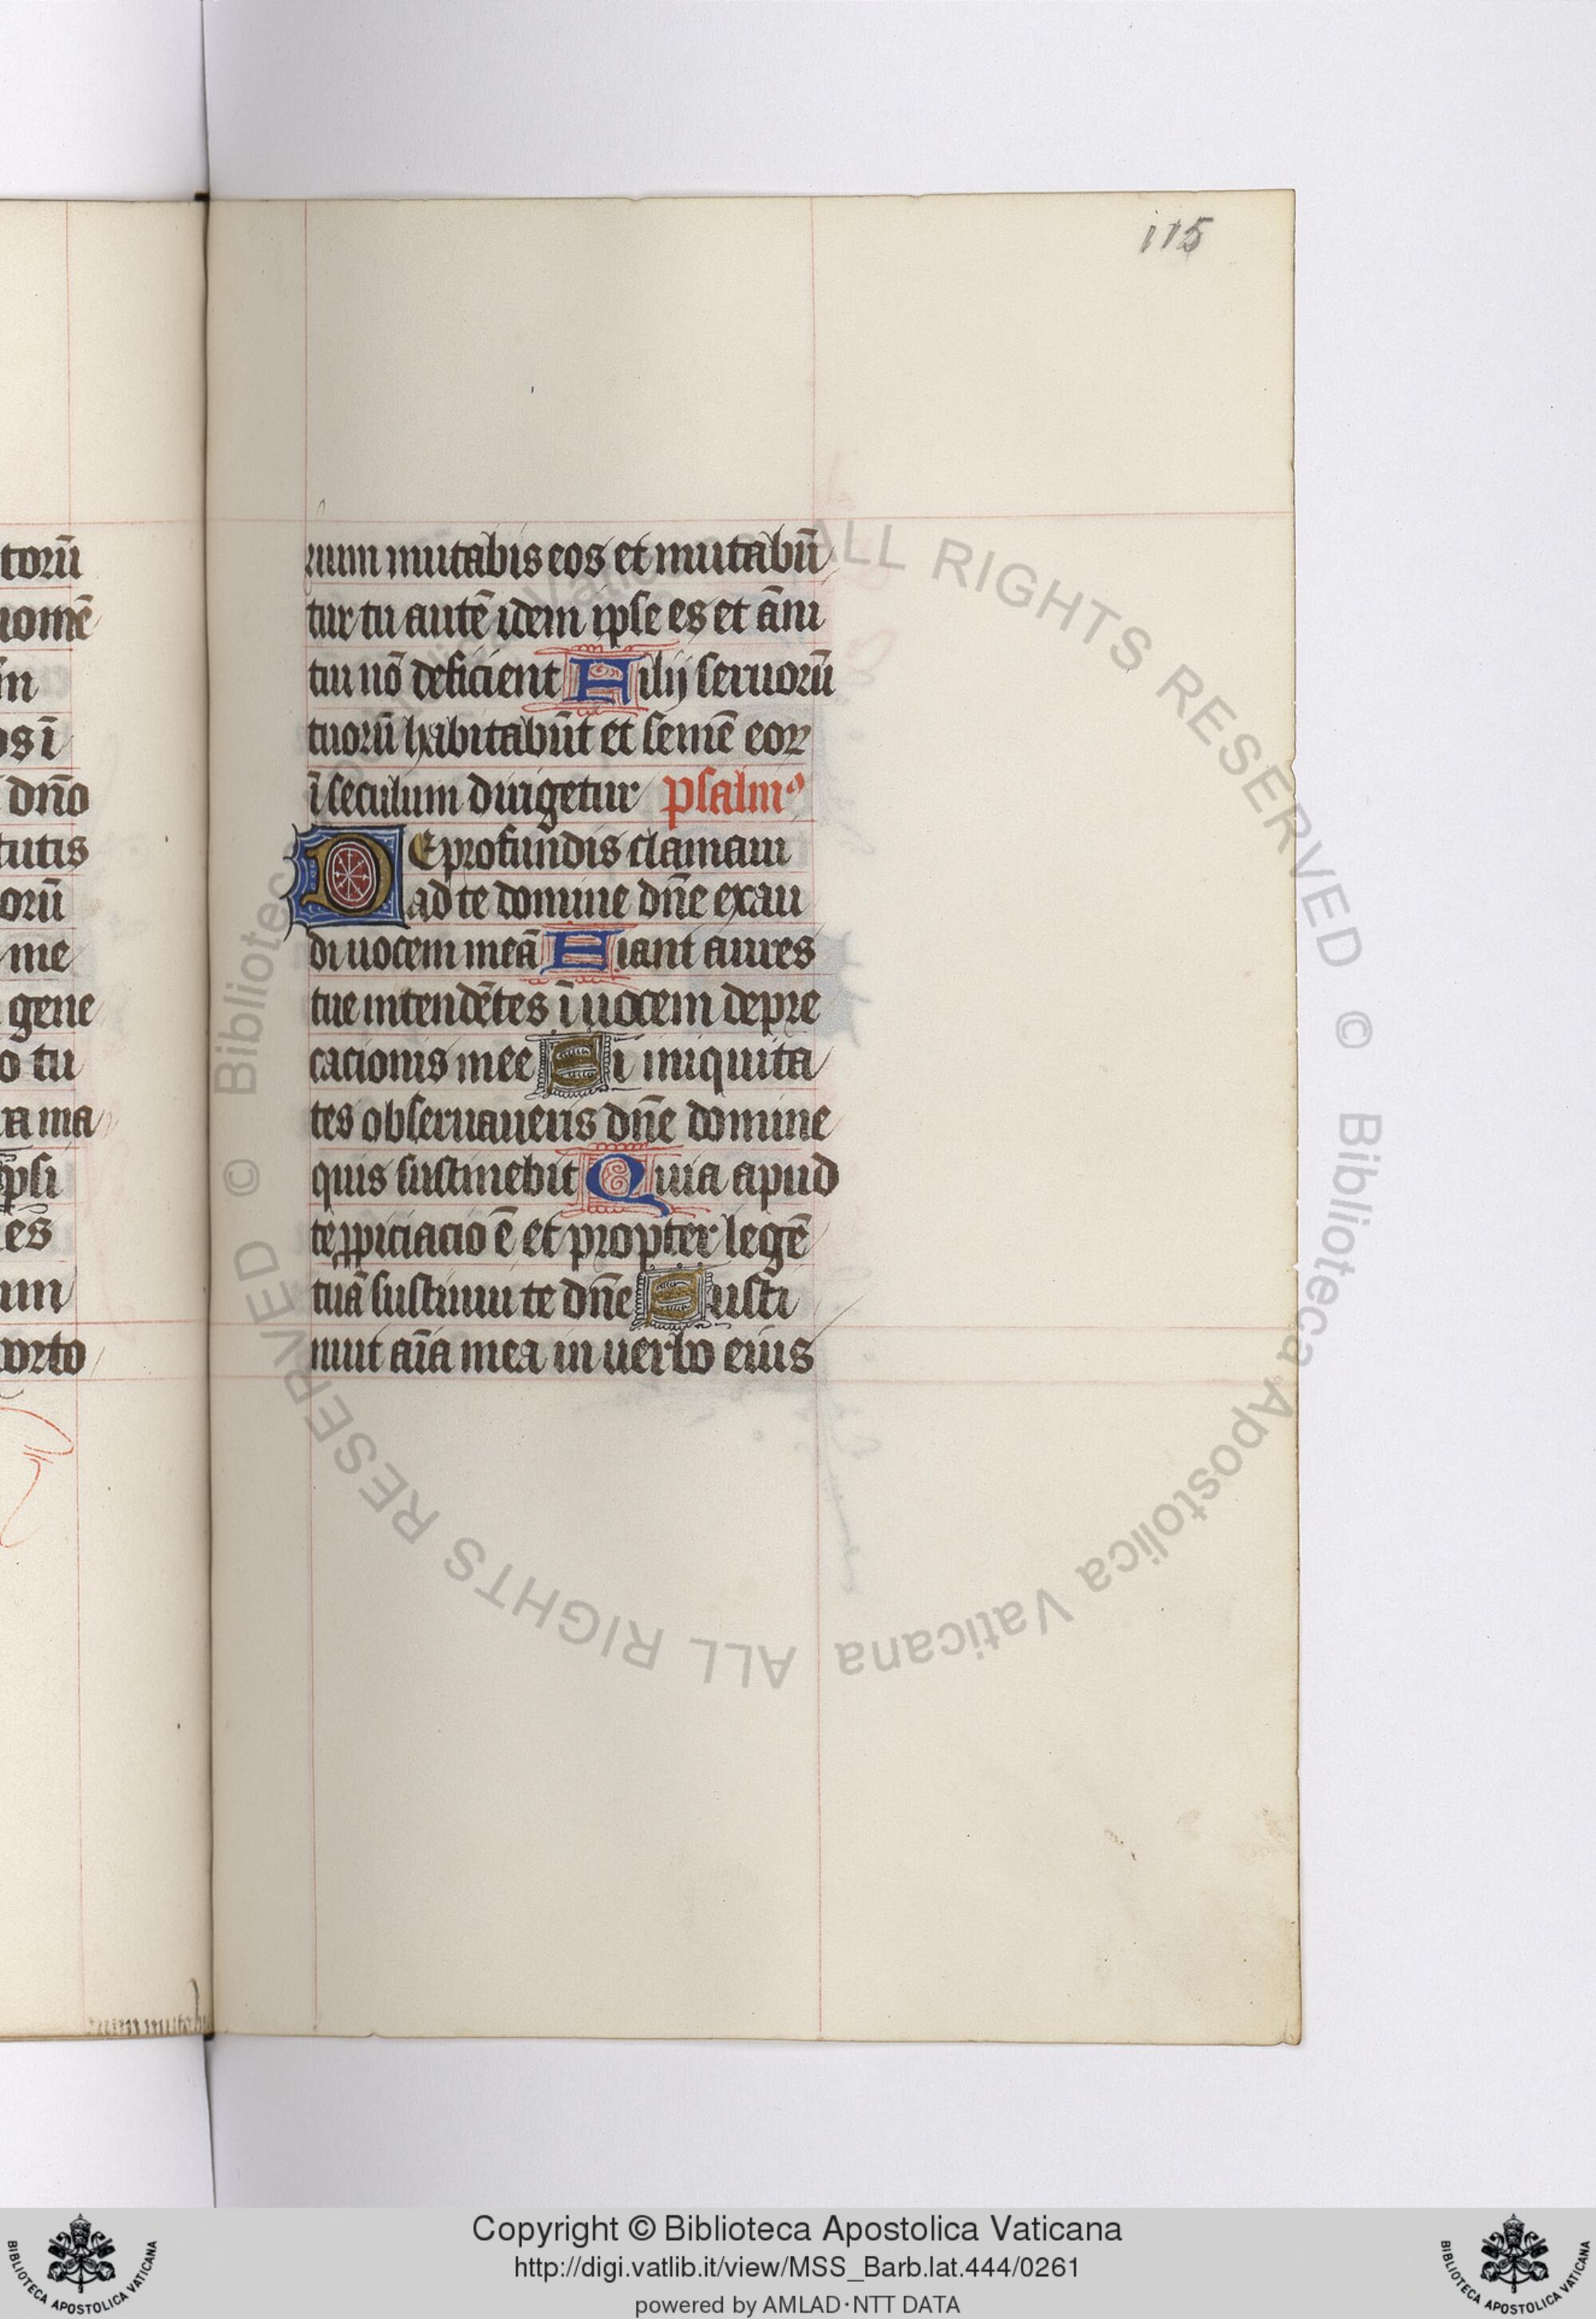 torū
nomē
in
os ī
dn̄o
tutis
orū
me
gene
o tu
ra ma
ip̄si
es
um
porto
nummutab
115
rium mutabis eos et mutabūn
tur tu autē idem ipse es et ān̄i
tui nō deficient Filij seruorū
tuorū habitabūt et semē eoꝝ
ī seculum dirigetur psalmꝰ
De profundis clamaui
ad te domine dn̄e exau
di uocem meā Fiant aures
tue intendētes ī uocem depre
cacionis mee Si iniquita
tes obseruaueris dn̄e domine
quis sustinebit Quia apud
te ꝓpiciacio ē et propter legē
tuā sustinui te dn̄e Susti
nuit aīa mea in uerbo eius
© Biblioteca Apostolica Vaticana ALL RIGHTS RESERVED
© Biblioteca Apostolica Vaticana ALL RIGHTS RESERVED
Copyright © Biblioteca Apostolica Vaticana
http://digi.vatlib.it/view/MSS_Barb.lat.444/0261
powered by AMLAD·NTT DATA
BIBLIOTECA APOSTOLICA VATICANA
BIBLIOTECA APOSTOLICA VATICANA